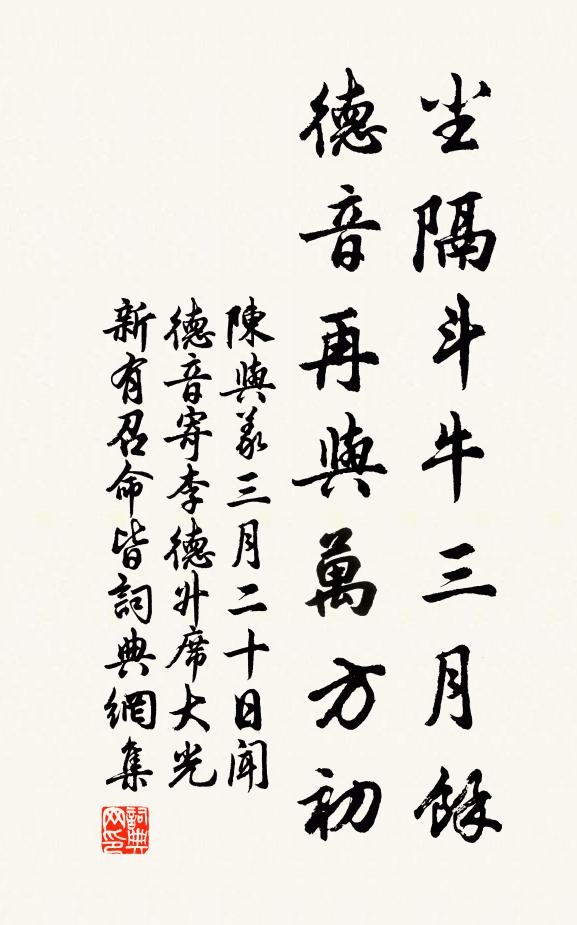 尘隔斗牛三月餘
德音再與萬方初
陳與義三月二十日聞
德音寄李德升席大光
新有召命皆詞典網集
詞典网印